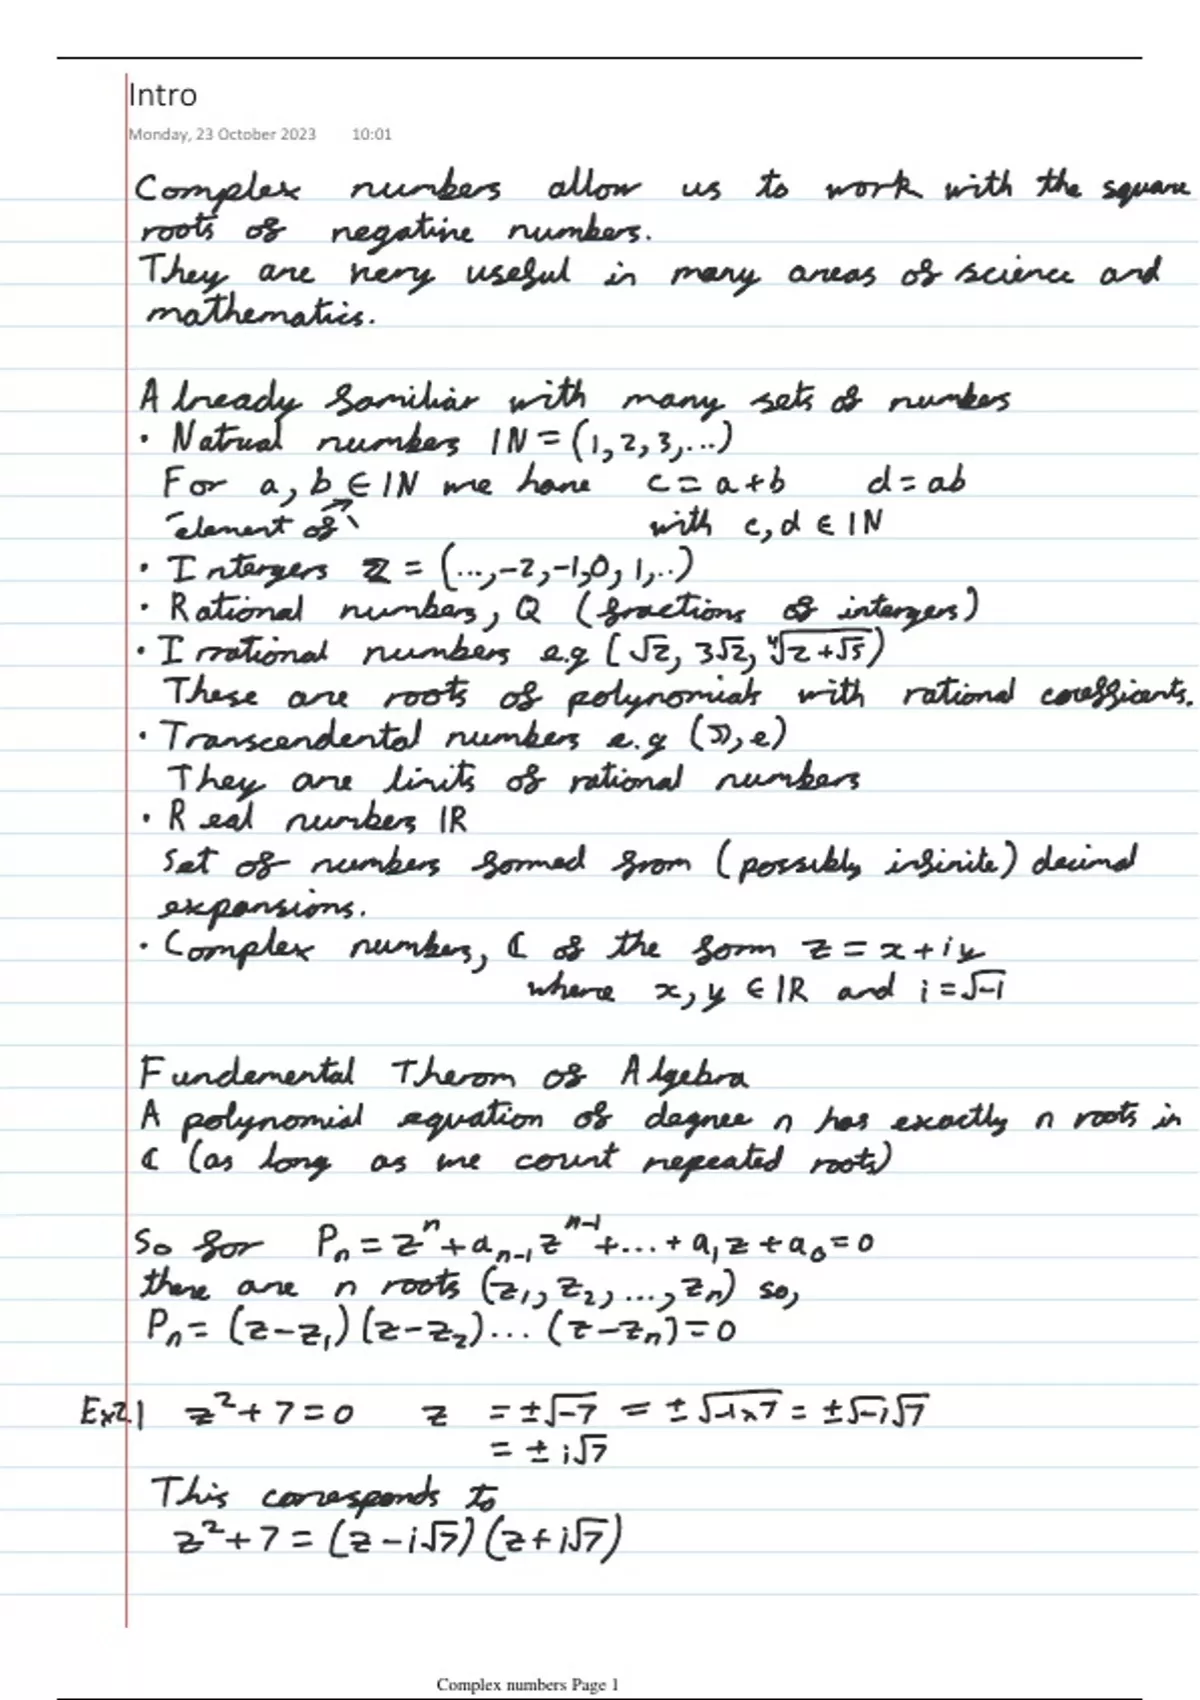 Intro
Monday, 23 October 2023 10:01
Complex numbers allow us to work with the square
roots of negative numbers.
They are very useful in many areas of science and
mathematics.
Already familiar with many sets of numbers
• Natrual numbers ℕ = (1, 2, 3, ...)
For a, b ∈ ℕ we have c = a + b d = ab
element of with c, d ∈ ℕ
• Intergers ℤ = (..., -2, -1, 0, 1, ..)
• Rational numbers, Q (fractions of intergers)
• Irrational numbers e.g (√2, 3√2, ∜(2+√5))
These are roots of polynomials with rational coefficents.
• Transcendental numbers e.g (π, e)
They are limits of rational numbers
• Real numbers ℝ
Set of numbers formed from (possibly infinite) decimal
expansions.
• Complex numbers, ℂ of the form z = x + iy
where x, y ∈ ℝ and i = √-1
Fundemental Therom of Algebra
A polynomial equation of degree n has exactly n roots in
ℂ (as long as we count repeated roots)
So for Pₙ = zⁿ + aₙ₋₁zⁿ⁻¹ + ... + a₁z + a₀ = 0
there are n roots (z₁, z₂, ..., zₙ) so,
Pₙ = (z - z₁)(z - z₂)... (z - zₙ) = 0
Ex2.1 z² + 7 = 0 z = ±√-7 = ±√-1×7 = ±√-1√7
= ± i√7
This corresponds to
z² + 7 = (z - i√7)(z + i√7)
Complex numbers Page 1